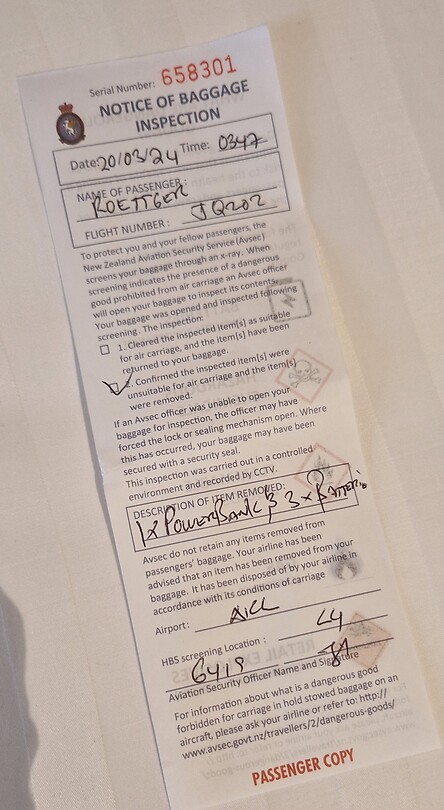 Serial Number: 658301
NOTICE OF BAGGAGE
INSPECTION
Date: 20/03/24 Time: 0347
NAME OF PASSENGER:
ROETTGER
FLIGHT NUMBER: JQ202
To protect you and your fellow passengers, the
New Zealand Aviation Security Service (Avsec)
screens your baggage through an x-ray. When
screening indicates the presence of a dangerous
good prohibited from air carriage an Avsec officer
will open your baggage to inspect its contents.
Your baggage was opened and inspected following
screening. The inspection:
1. Cleared the inspected item(s) as suitable
for air carriage, and the item(s) have been
returned to your baggage.
2. Confirmed the inspected item(s) were
unsuitable for air carriage and the item(s)
were removed.
If an Avsec officer was unable to open your
baggage for inspection, the officer may have
forced the lock or sealing mechanism open. Where
this has occurred, your baggage may have been
secured with a security seal.
This inspection was carried out in a controlled
environment and recorded by CCTV.
DESCRIPTION OF ITEM REMOVED:
1x PowerBank & 3x Batterie
Avsec do not retain any items removed from
passengers' baggage. Your airline has been
advised that an item has been removed from your
baggage. It has been disposed of by your airline in
accordance with its conditions of carriage
Airport:
HBS screening Location: L4
6419
Aviation Security Officer Name and Signature
For information about what is a dangerous good
forbidden for carriage in hold stowed baggage on an
aircraft, please ask your airline or refer to: http://
www.avsec.govt.nz/travellers/2/dangerous-goods/
PASSENGER COPY